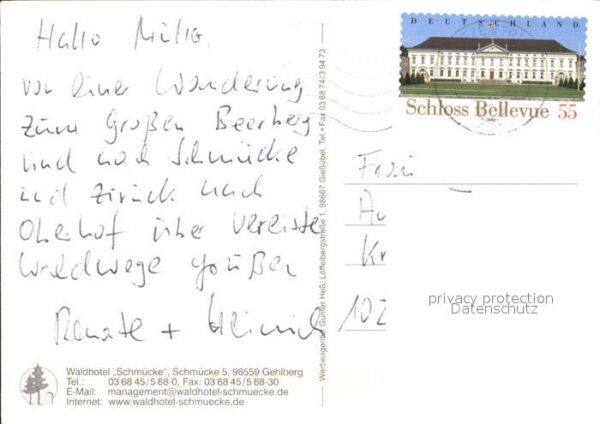 Hallo
von einer Wanderung
zum Großen Beerberg
und nach Schmücke
und zurück nach
Oberhof über vereiste
Waldwege grüßen
Renate + Heinrich
Waldhotel „Schmücke", Schmücke 5, 98559 Gehlberg
Tel.: 03 68 45/5 88-0, Fax: 03 68 45/5 88-30
E-Mail: management@waldhotel-schmuecke.de
Internet: www.waldhotel-schmuecke.de
Werbeagentur Günter Heß, Löffelbergstraße 1, 98667 Gießübel, Tel.+Fax 03 68 74/3 94 73
DEUTSCHLAND
Schloss Bellevue 55
Frau
Au
Kr
102
privacy protection
Datenschutz